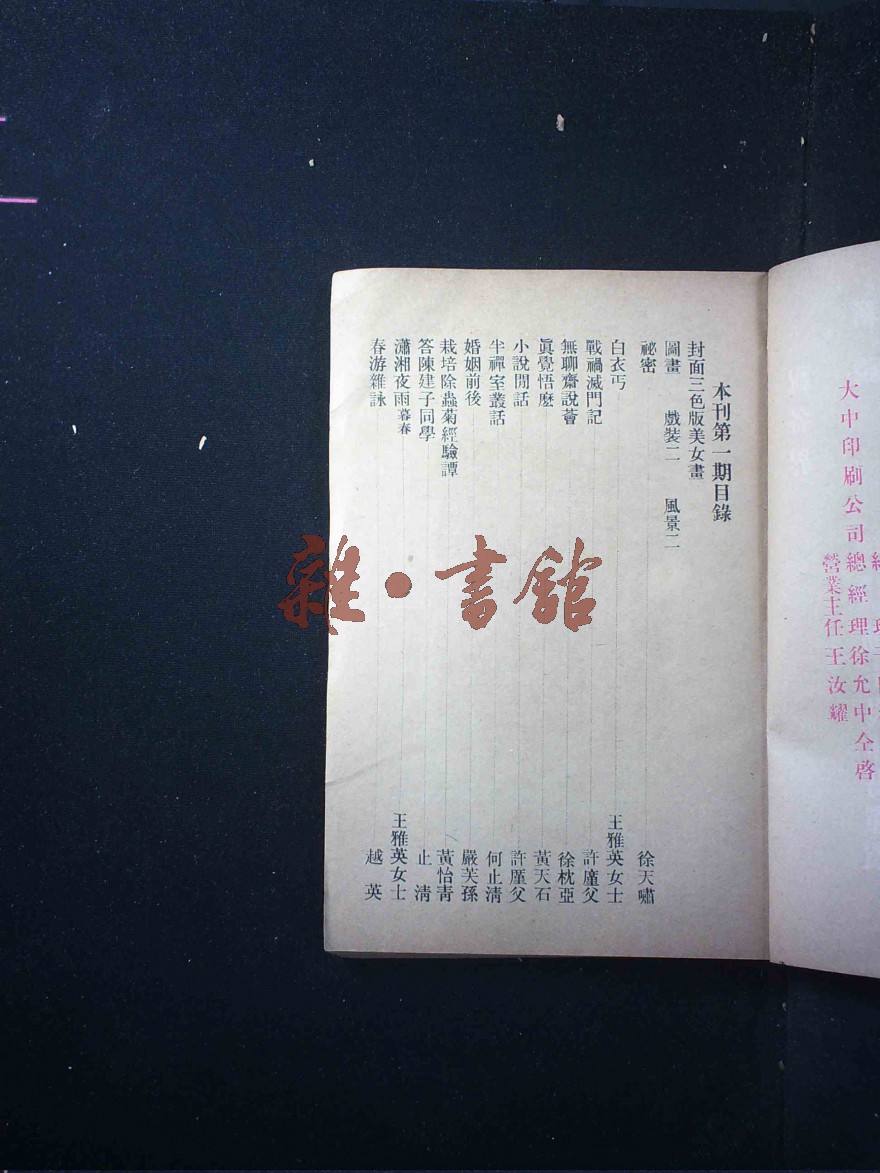 大中印刷公司總經理徐允中仝啓
營業主任王汝耀
本刊第一期目錄
封面三色版美女畫
圖畫 戲裝二 風景二
祕密 徐天嘯
白衣丐 王雅英女士
戰禍滅門記 許廑父
無聊齋說薈 徐枕亞
眞覺悟麽 黃天石
小說閒話 許廑父
半禪室叢話 何止淸
婚姻前後 嚴芙孫
栽培除蟲菊經驗譚 黃怡青
答陳建子同學 止淸
瀟湘夜雨暮春 王雅英女士
春游雜詠 越英
雜·書館